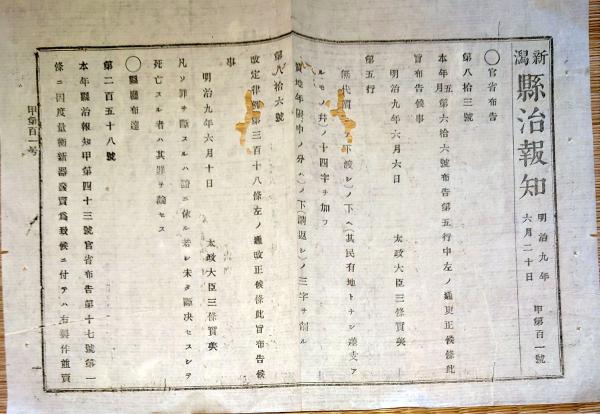 新潟縣治報知
明治九年
六月二十日
甲第百一號
○官省布告
第八拾三號
本年五月第六拾六號布告第五行中左ノ通更正候條此
旨布告候事
明治九年六月六日
太政大臣三條實美
第五行
ノ下ヘ(其民有地トナシ
ルモノ幷)ノ十四字ヲ加フ
ノ下(請返シ)ノ三字ヲ削ル
第八拾六號
改定律例第三百十八條左ノ通改正候條此旨布告候
事
明治九年六月十日
太政大臣三條實美
凡ソ罪ヲ斷スルハ證ニ依ル若シ未タ斷决セスシテ
死亡スル者ハ其罪ヲ論セス
○縣廳布達
第二百五十八號
本年縣治報知甲第四十三號官省布告第十七號第一
條ニ因度量衡新器發賣爲致候ニ付テハ右製作並賣
甲第百一号